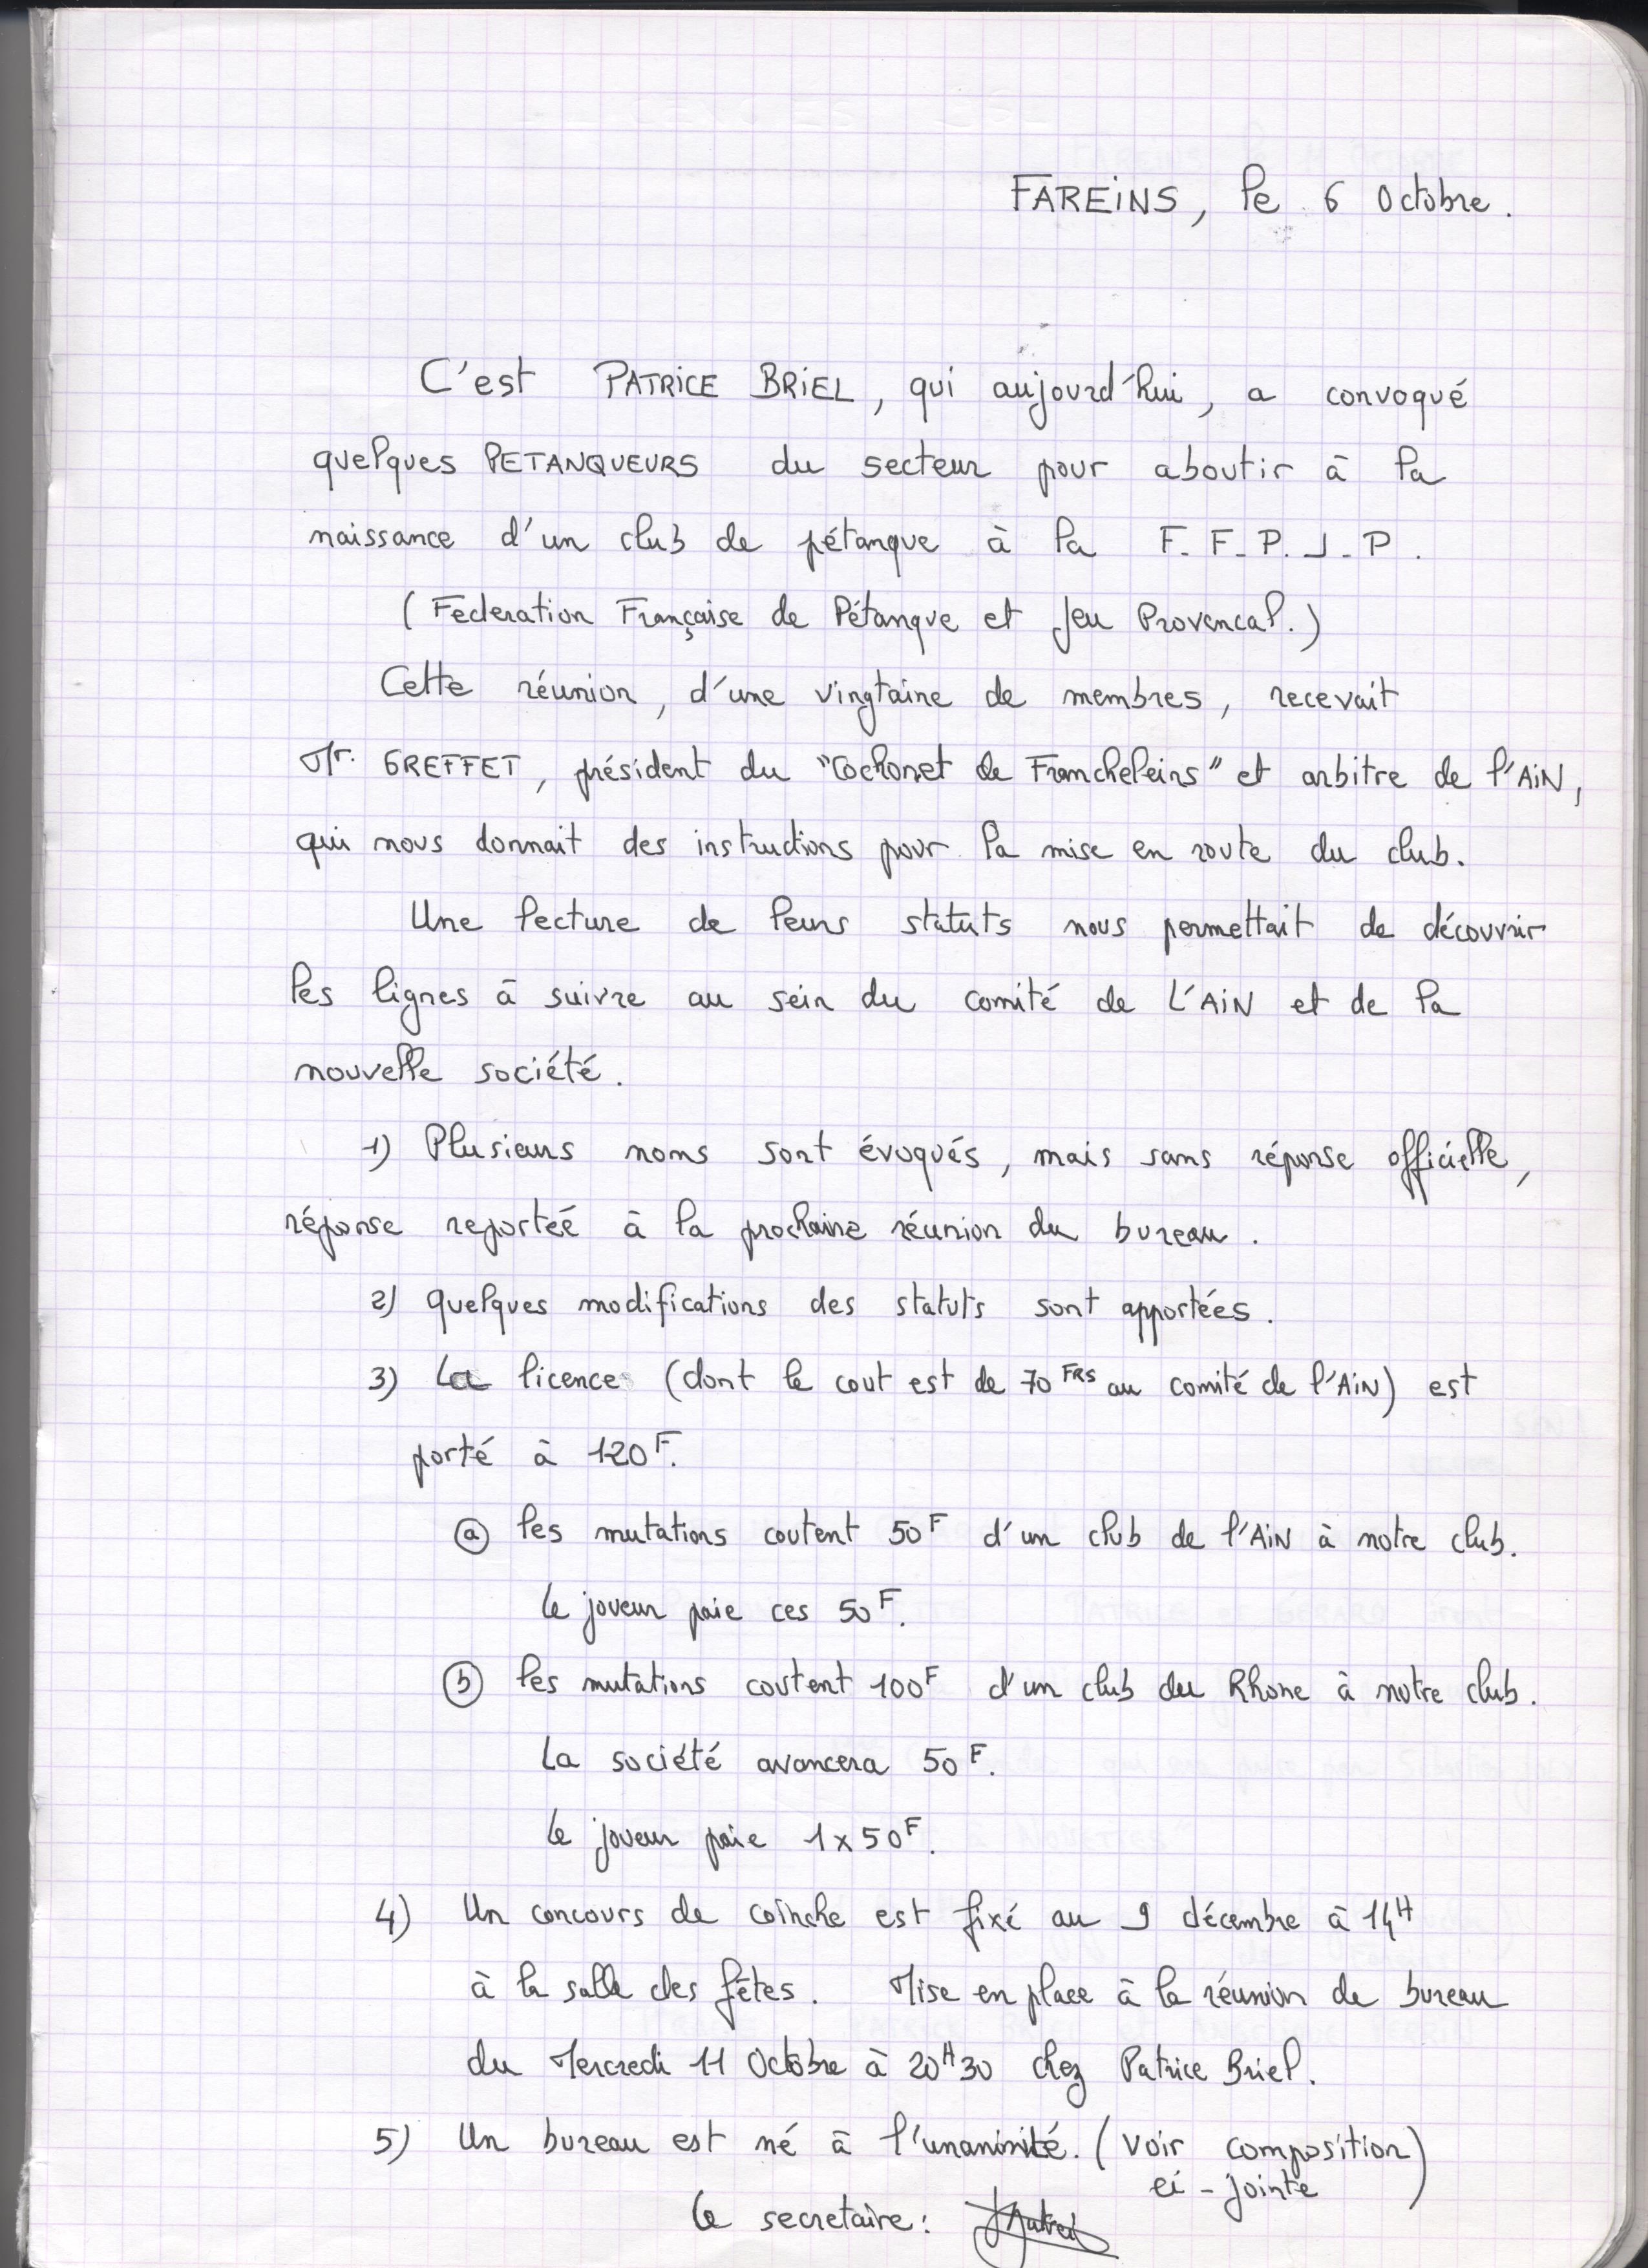 FAREiNS, le 6 Octobre.
C'est PATRiCE BRiEL, qui aujourd'hui, a convoqué
quelques PETANQUEURS du secteur pour aboutir à la
naissance d'un club de pétanque à la F.F.P.J.P.
(Federation Française de Pétanque et Jeu Provencal.)
Cette réunion, d'une vingtaine de membres, recevait
Mr. GREFFET, président du "Cochonet de Francheleins" et arbitre de l'AiN,
qui nous donnait des instructions pour la mise en route du club.
Une lecture de leurs statuts nous permettait de découvrir
les lignes à suivre au sein du comité de L'AiN et de la
nouvelle société.
1) Plusieurs noms sont évoqués, mais sans réponse officielle,
réponse reporteé à la prochaine réunion du bureau.
2) quelques modifications des statuts sont apportées.
3) La licence (dont le cout est de 70 FRS au comité de l'AiN) est
porté à 120 F.
(a) les mutations coutent 50 F d'un club de l'AiN à notre club.
Le joueur paie ces 50 F.
(b) les mutations coutent 100 F d'un club du Rhone à notre club.
La société avancera 50 F.
Le joueur paie 1 x 50 F.
4) Un concours de coinche est fixé au 9 décembre à 14H
à la salle des fêtes. Mise en place à la réunion de bureau
du Mercredi 11 Octobre à 20H30 chez Patrice Briel.
5) Un bureau est né à l'unanimité. (voir composition)
ci-jointe
Le secretaire: